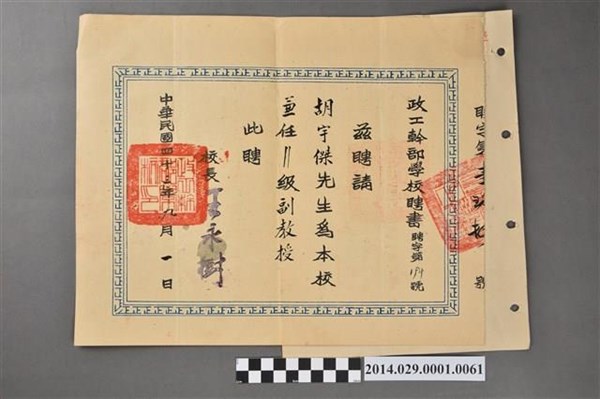 政工幹部學校聘書 聘字第 號
茲聘請
胡宇傑先生為本校
兼任 級副教授
此聘
校長 王永樹
中華民國四十三年九月一日
2014.029.0001.0061